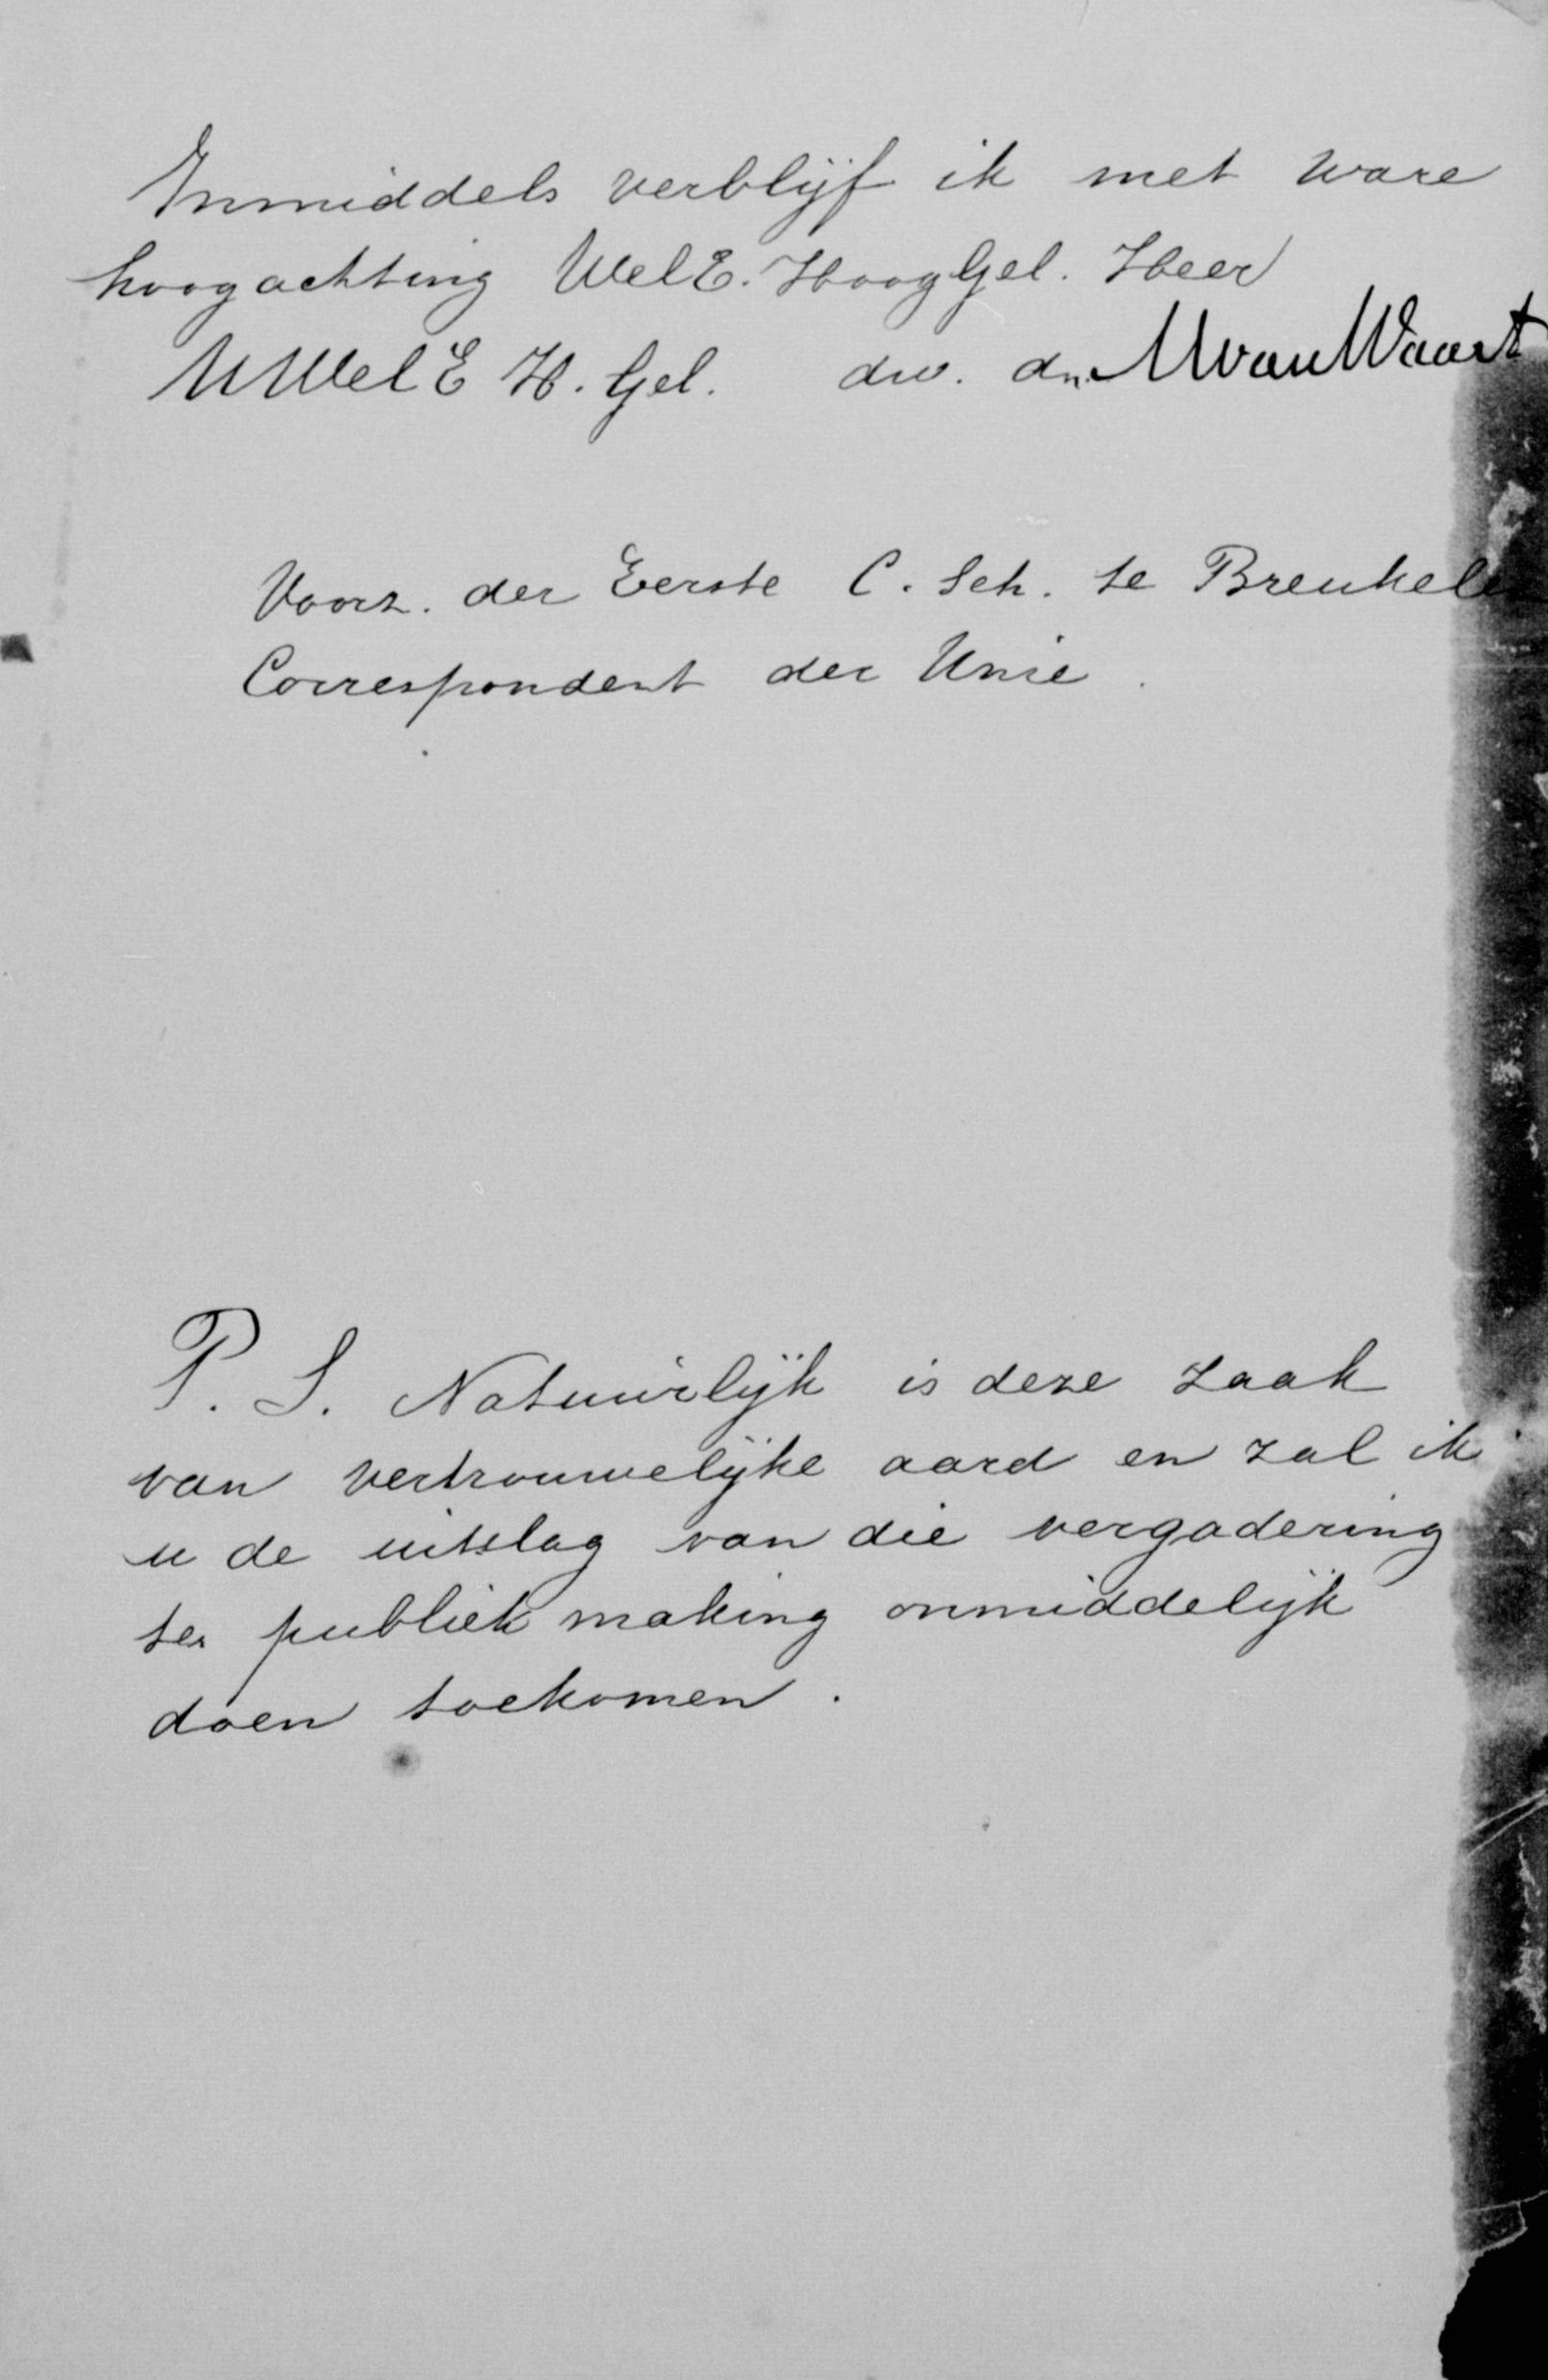 Inmiddels verblijf ik met ware
hoogachting WelE. HoogGel. Heer
UWelE H. Gel. dw. dn. M van Waart
Voorz. der Eerste C. Sch. te Breukelen
Correspondent der Unie.
P. S. Natuurlijk is deze zaak
van vertrouwelijke aard en zal ik
u de uitslag van die vergadering
ter publiek making onmiddelijk
doen toekomen.